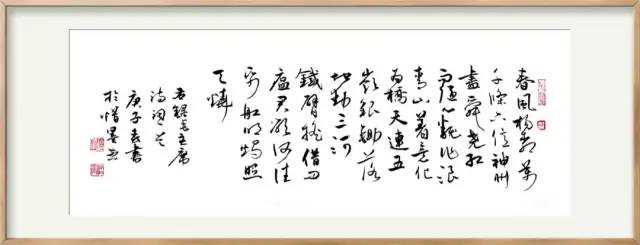 春風楊柳萬
千條六億神州
盡舜堯紅
雨隨心翻作浪
青山著意化
為橋天連五
嶺銀鋤落
地動三河
鐵臂搖借問
瘟君欲何往
紙船明燭照
天燒
錄毛主席
詩詞
庚子春書
於惜墨